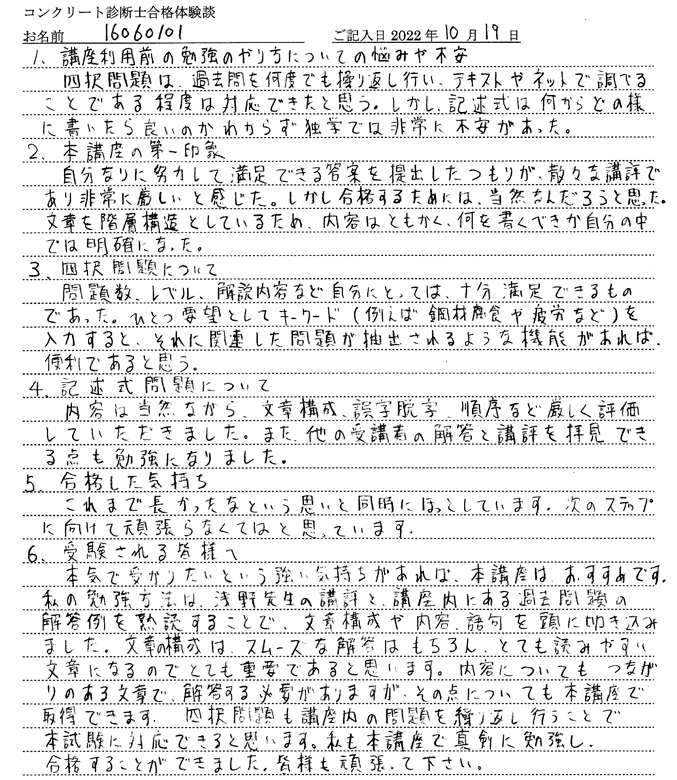 コンクリート診断士合格体験談
お名前 16060101 ご記入日 2022年 10月 19日
1、講座利用前の勉強のやり方についての悩みや不安
四択問題は、過去問を何度でも繰り返し行い、テキストやネットで調べる
ことである程度は対応できたと思う。しかし、記述式は何からどの様
に書いたら良いのかわからず独学では非常に不安があった。
2、本講座の第一印象
自分なりに努力して満足できる答案を提出したつもりが、散々な講評で
あり非常に厳しいと感じた。しかし合格するためには、当然なんだろうと思った。
文章を階層構造としているため、内容はともかく、何を書くべきか自分の中
では明確になった。
3、四択問題について
問題数、レベル、解説内容など自分にとっては、十分満足できるもの
であった。ひとつ要望としてキーワード(例えば鋼材腐食や疲労など)を
入力すると、それに関連した問題が抽出されるような機能があれば、
便利であると思う。
4、記述式問題について
内容は当然ながら、文章構成、誤字脱字、順序など厳しく評価
していただきました。また、他の受講者の解答と講評を拝見でき
る点も勉強になりました。
5、合格した気持ち
これまで長かったなという思いと同時にほっとしています。次のステップ
に向けて頑張らなくてはと思っています。
6、受験される皆様へ
本気で受かりたいという強い気持ちがあれば、本講座は、おすすめです。
私の勉強方法は、浅野先生の講評と、講座内にある過去問題の
解答例を熟読することで、文章構成や内容、語句を頭に叩き込み
ました。文章の構成は、スムーズな解答はもちろん、とても読みやすい
文章になるのでとても重要であると思います。内容についてもつなが
りのある文章で、解答する必要がありますが、その点についても本講座で
取得できます。 四択問題も講座内の問題を繰り返し行うことで
本試験に対応できると思います。私も本講座で真剣に勉強し、
合格することができました。皆様も頑張って下さい。